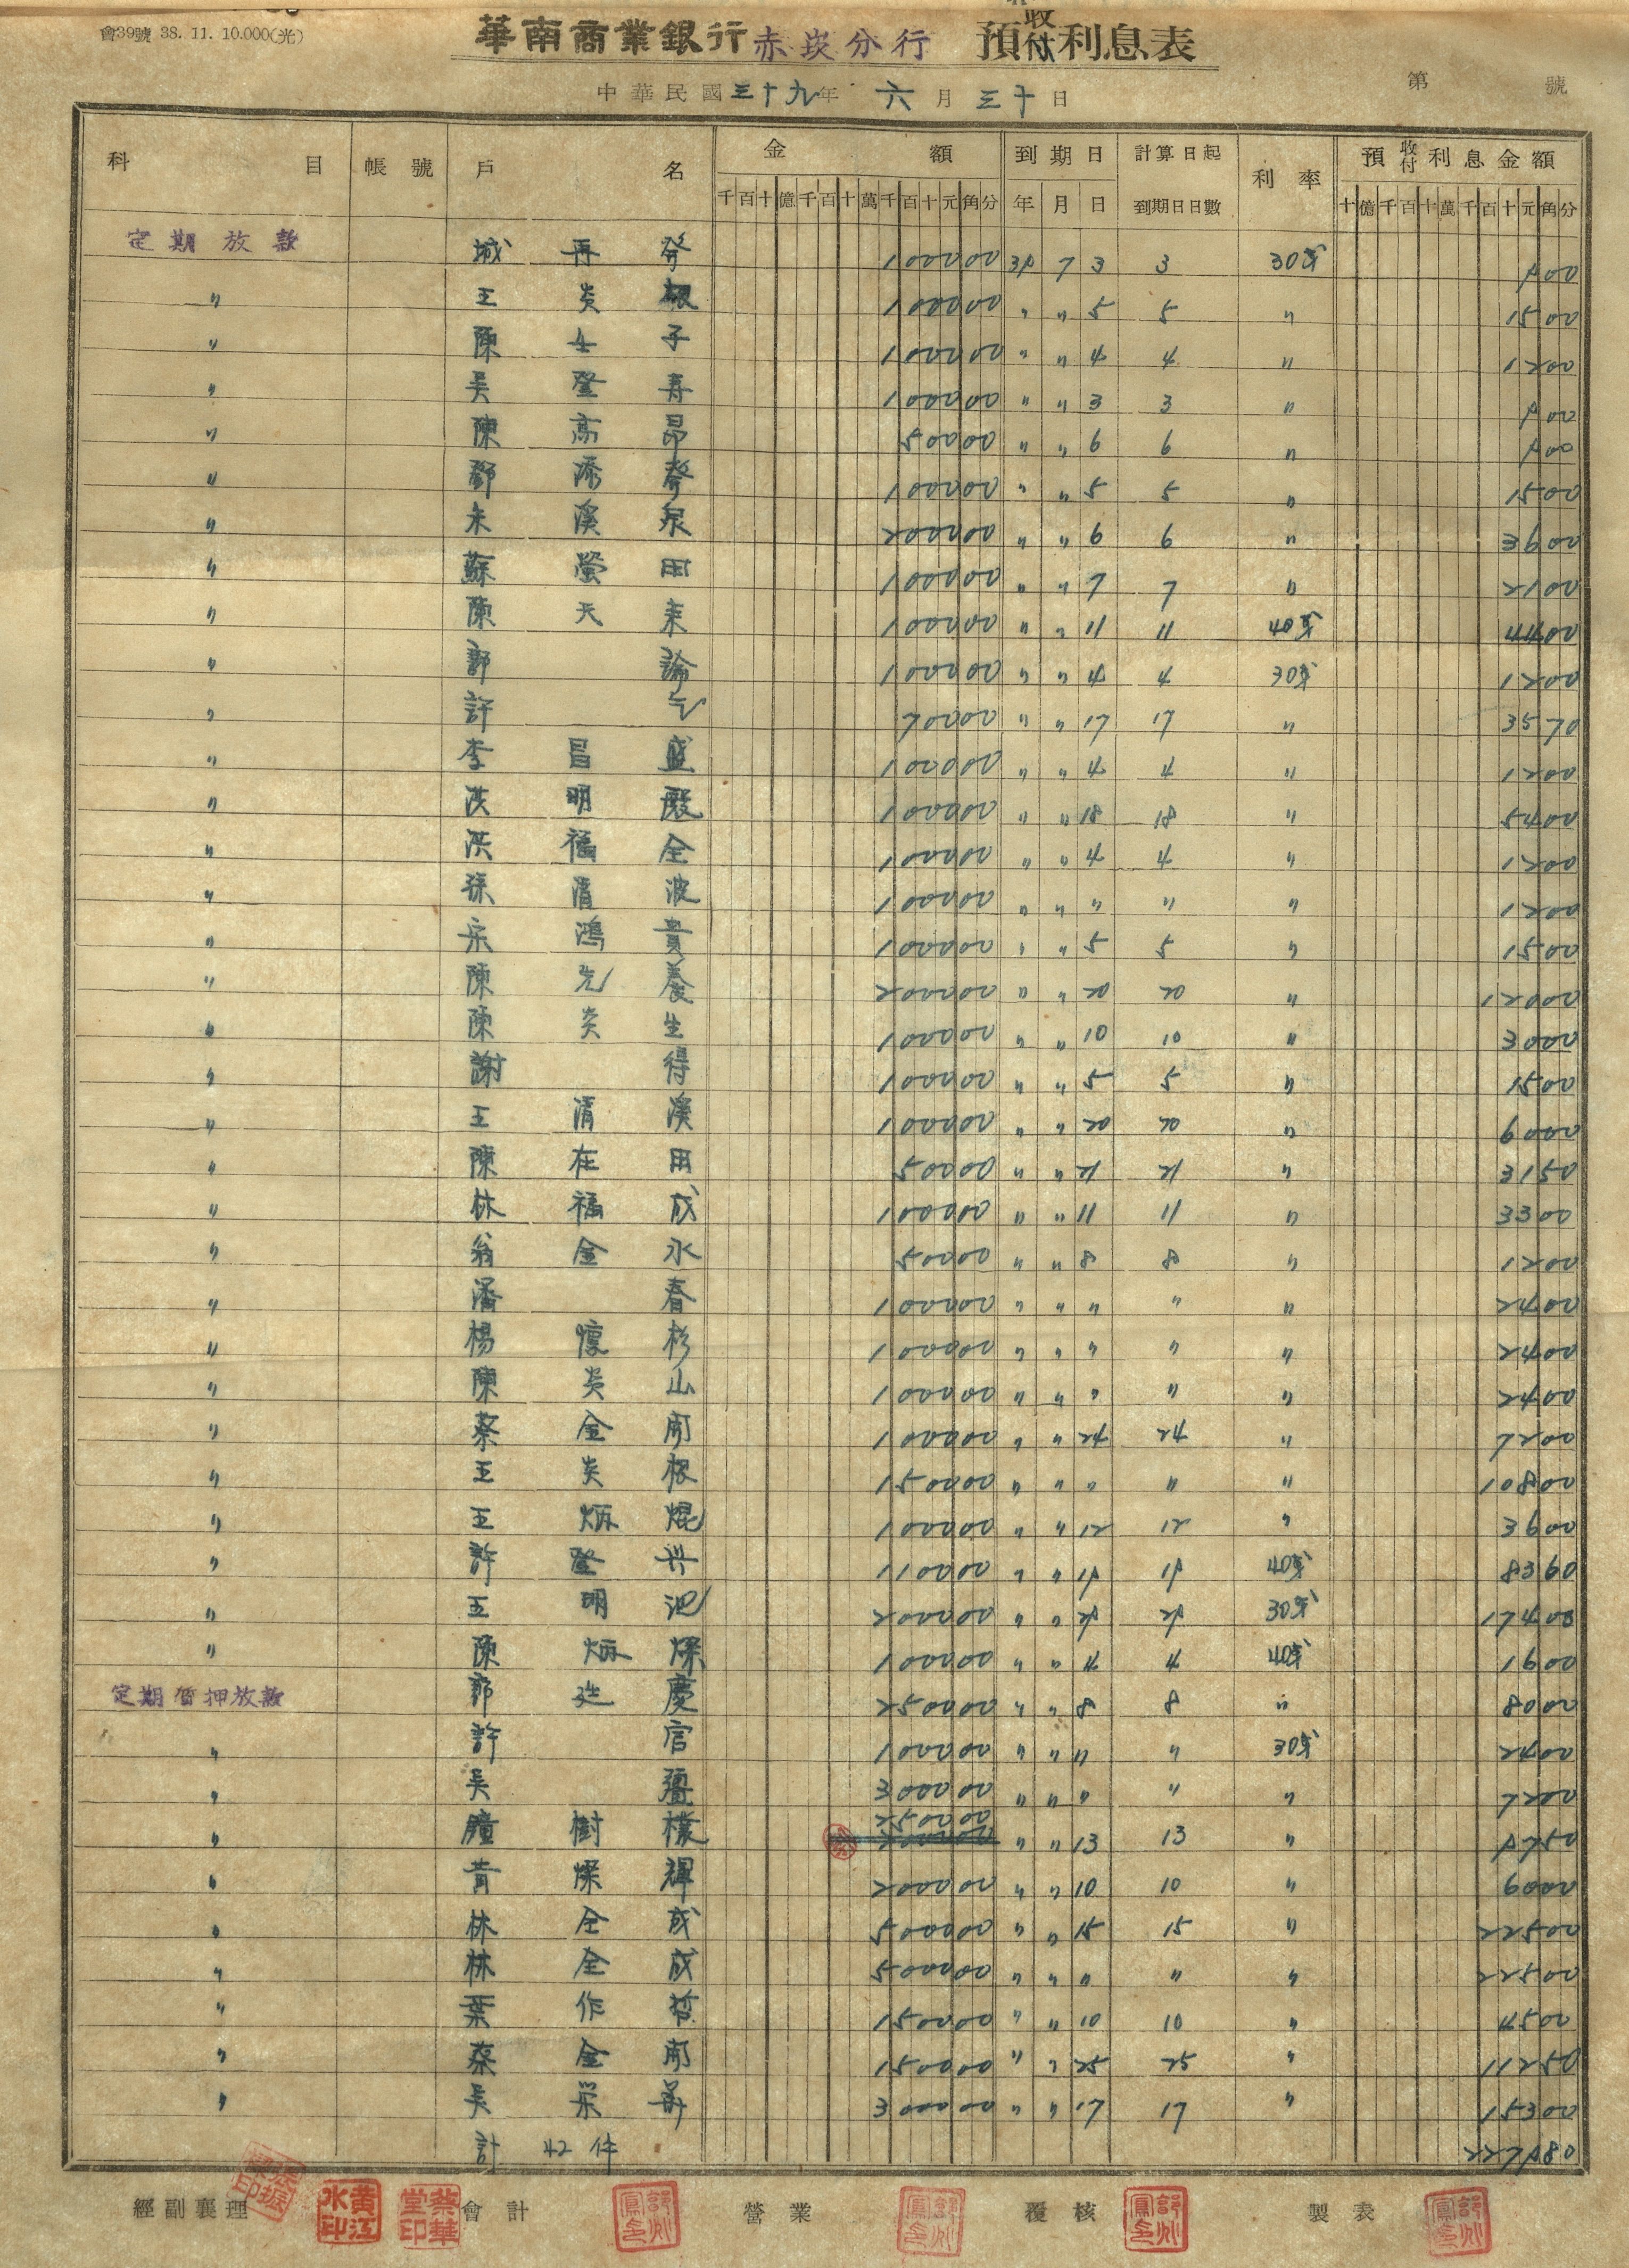 會39號 38. 11. 10.000(光)
華南商業銀行赤崁分行 預收付利息表
中華民國三十九年 六月三十日
第 號
科目 帳號 戶名 金額 到期日 計算日起到期日日數 利率 預收付利息金額
千百十億千百十萬千百十元角分 年 月 日 十億千百十萬千百十元角分
定期放款 城再發 100000 39 7 3 3 30 900
〃 王炎根 100000 〃 〃 5 5 〃 1500
〃 陳女子 100000 〃 〃 4 4 〃 1200
〃 吳登壽 100000 〃 〃 3 3 〃 900
〃 陳高昂 50000 〃 〃 6 6 〃 900
〃 鄧添發 100000 〃 〃 5 5 〃 1500
〃 朱溪泉 200000 〃 〃 6 6 〃 3600
〃 蘇螢田 100000 〃 〃 7 7 〃 2100
〃 陳天来 100000 〃 〃 11 11 40 4400
〃 郭論 100000 〃 〃 4 4 30 1200
〃 許乞 70000 〃 〃 17 17 〃 3570
〃 李昌盛 100000 〃 〃 4 4 〃 1200
〃 洪明殿 100000 〃 〃 18 18 〃 5400
〃 洪福全 100000 〃 〃 4 4 〃 1200
〃 孫清波 100000 〃 〃 〃 〃 〃 1200
〃 宋鴻貴 100000 〃 〃 5 5 〃 1500
〃 陳先養 200000 〃 〃 20 20 〃 12000
〃 陳炎生 100000 〃 〃 10 10 〃 3000
〃 謝得 100000 〃 〃 5 5 〃 1500
〃 王清溪 100000 〃 〃 20 20 〃 6000
〃 陳在田 50000 〃 〃 21 21 〃 3150
〃 林福成 100000 〃 〃 11 11 〃 3300
〃 翁金水 50000 〃 〃 8 8 〃 1200
〃 潘春 100000 〃 〃 〃 〃 〃 2400
〃 楊懷杉 100000 〃 〃 〃 〃 〃 2400
〃 陳炎山 100000 〃 〃 〃 〃 〃 2400
〃 蔡金 100000 〃 〃 24 24 〃 7200
〃 王炎根 150000 〃 〃 〃 〃 〃 10800
〃 王炳焜 100000 〃 〃 12 12 〃 3600
〃 許登 110000 〃 〃 19 19 40 8360
〃 王明池 200000 〃 〃 29 29 30 17400
〃 陳炳燦 100000 〃 〃 4 4 40 1600
定期質押放款 郭廷慶 250000 〃 〃 8 8 〃 8000
〃 許官 100000 〃 〃 〃 〃 30 2400
〃 吳 300000 〃 〃 〃 〃 〃 7200
〃 樹樸 250000 〃 〃 13 13 〃 9750
〃 黃燦輝 200000 〃 〃 10 10 〃 6000
〃 林全成 500000 〃 〃 15 15 〃 22500
〃 林全成 500000 〃 〃 〃 〃 〃 22500
〃 葉作哲 150000 〃 〃 10 10 〃 4500
〃 蔡金 150000 〃 〃 25 25 〃 11250
〃 吳栄 300000 〃 〃 17 17 〃 15300
計 42件 227980
經副襄理 黃江水印 蔡華堂印 會計 營業 覆核 製表